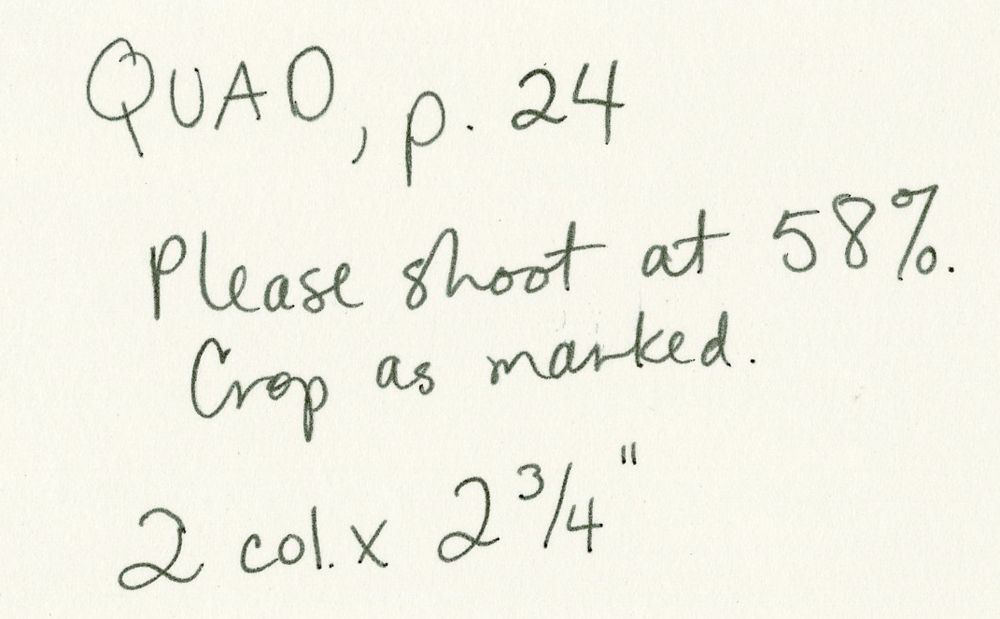 QUAD, p. 24
Please shoot at 58%.
Crop as marked.
2 col. x 2 3/4"